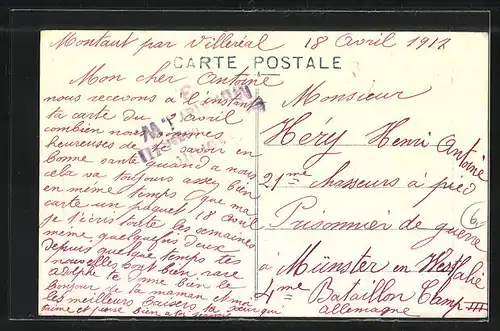 Montaut par Villeréal 18 Avril 1917
CARTE POSTALE
Mon cher Antoine
nous recevons à l'instant
ta carte du avril
combien nous sommes
heureuses de te savoir en
bonne santé quand a nous
cela va toujours assez bien
en même temps que ma
carte un paquet 18 Avril
je t'écris toute les semaines
même quelquefois deux
Depuis quelque temps tes
nouvelles sont bien rare
adolphe te donne bien le
bonjour de ta maman et moi
les meilleurs baisers ta sœur qui
t'aime et pense bien a toi
Monsieur
Héry Henri Antoine
21me chasseurs à pied
Prisonnier de guerre
à Münster en Westfalie
4me Bataillon Camp III
allemagne
6